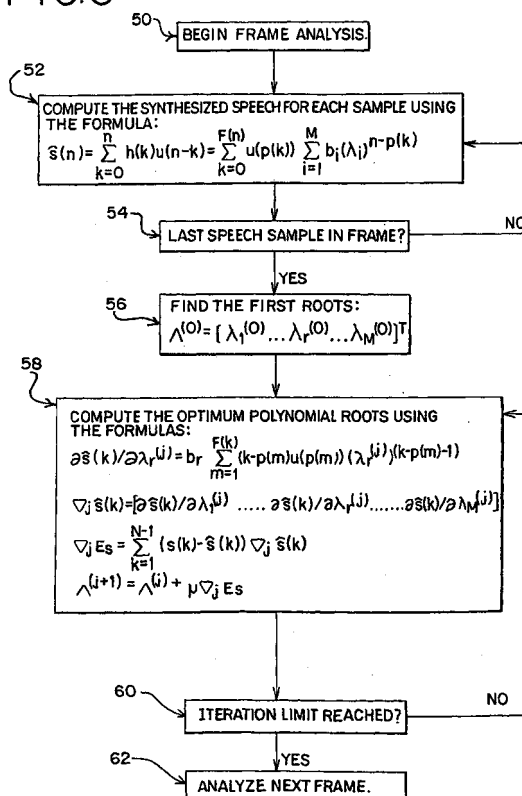 50
BEGIN FRAME ANALYSIS.
52
COMPUTE THE SYNTHESIZED SPEECH FOR EACH SAMPLE USING
THE FORMULA:
ŝ(n)= Σ_{k=0}^{n} h(k)u(n-k)= Σ_{k=0}^{F(n)} u(p(k)) Σ_{i=1}^{M} b_i(λ_i)^{n-p(k)}
54
LAST SPEECH SAMPLE IN FRAME?
NO
YES
56
FIND THE FIRST ROOTS:
Λ^{(0)}=[ λ_1^{(0)} ... λ_r^{(0)} ... λ_M^{(0)}]^T
58
COMPUTE THE OPTIMUM POLYNOMIAL ROOTS USING
THE FORMULAS:
∂ŝ(k)/∂λ_r^{(j)}=b_r Σ_{m=1}^{F(k)} (k-p(m)u(p(m)) (λ_r^{(j)})^{(k-p(m)-1)}
∇_j ŝ(k)=[∂ŝ(k)/∂λ_1^{(j)} ..... ∂ŝ(k)/∂λ_r^{(j)}.......∂ŝ(k)/∂λ_M^{(j)}]
∇_j E_s = Σ_{k=1}^{N-1} (s(k)-ŝ(k)) ∇_j ŝ(k)
Λ^{(j+1)} = Λ^{(j)} + μ∇_j E_s
60
ITERATION LIMIT REACHED?
NO
YES
62
ANALYZE NEXT FRAME.